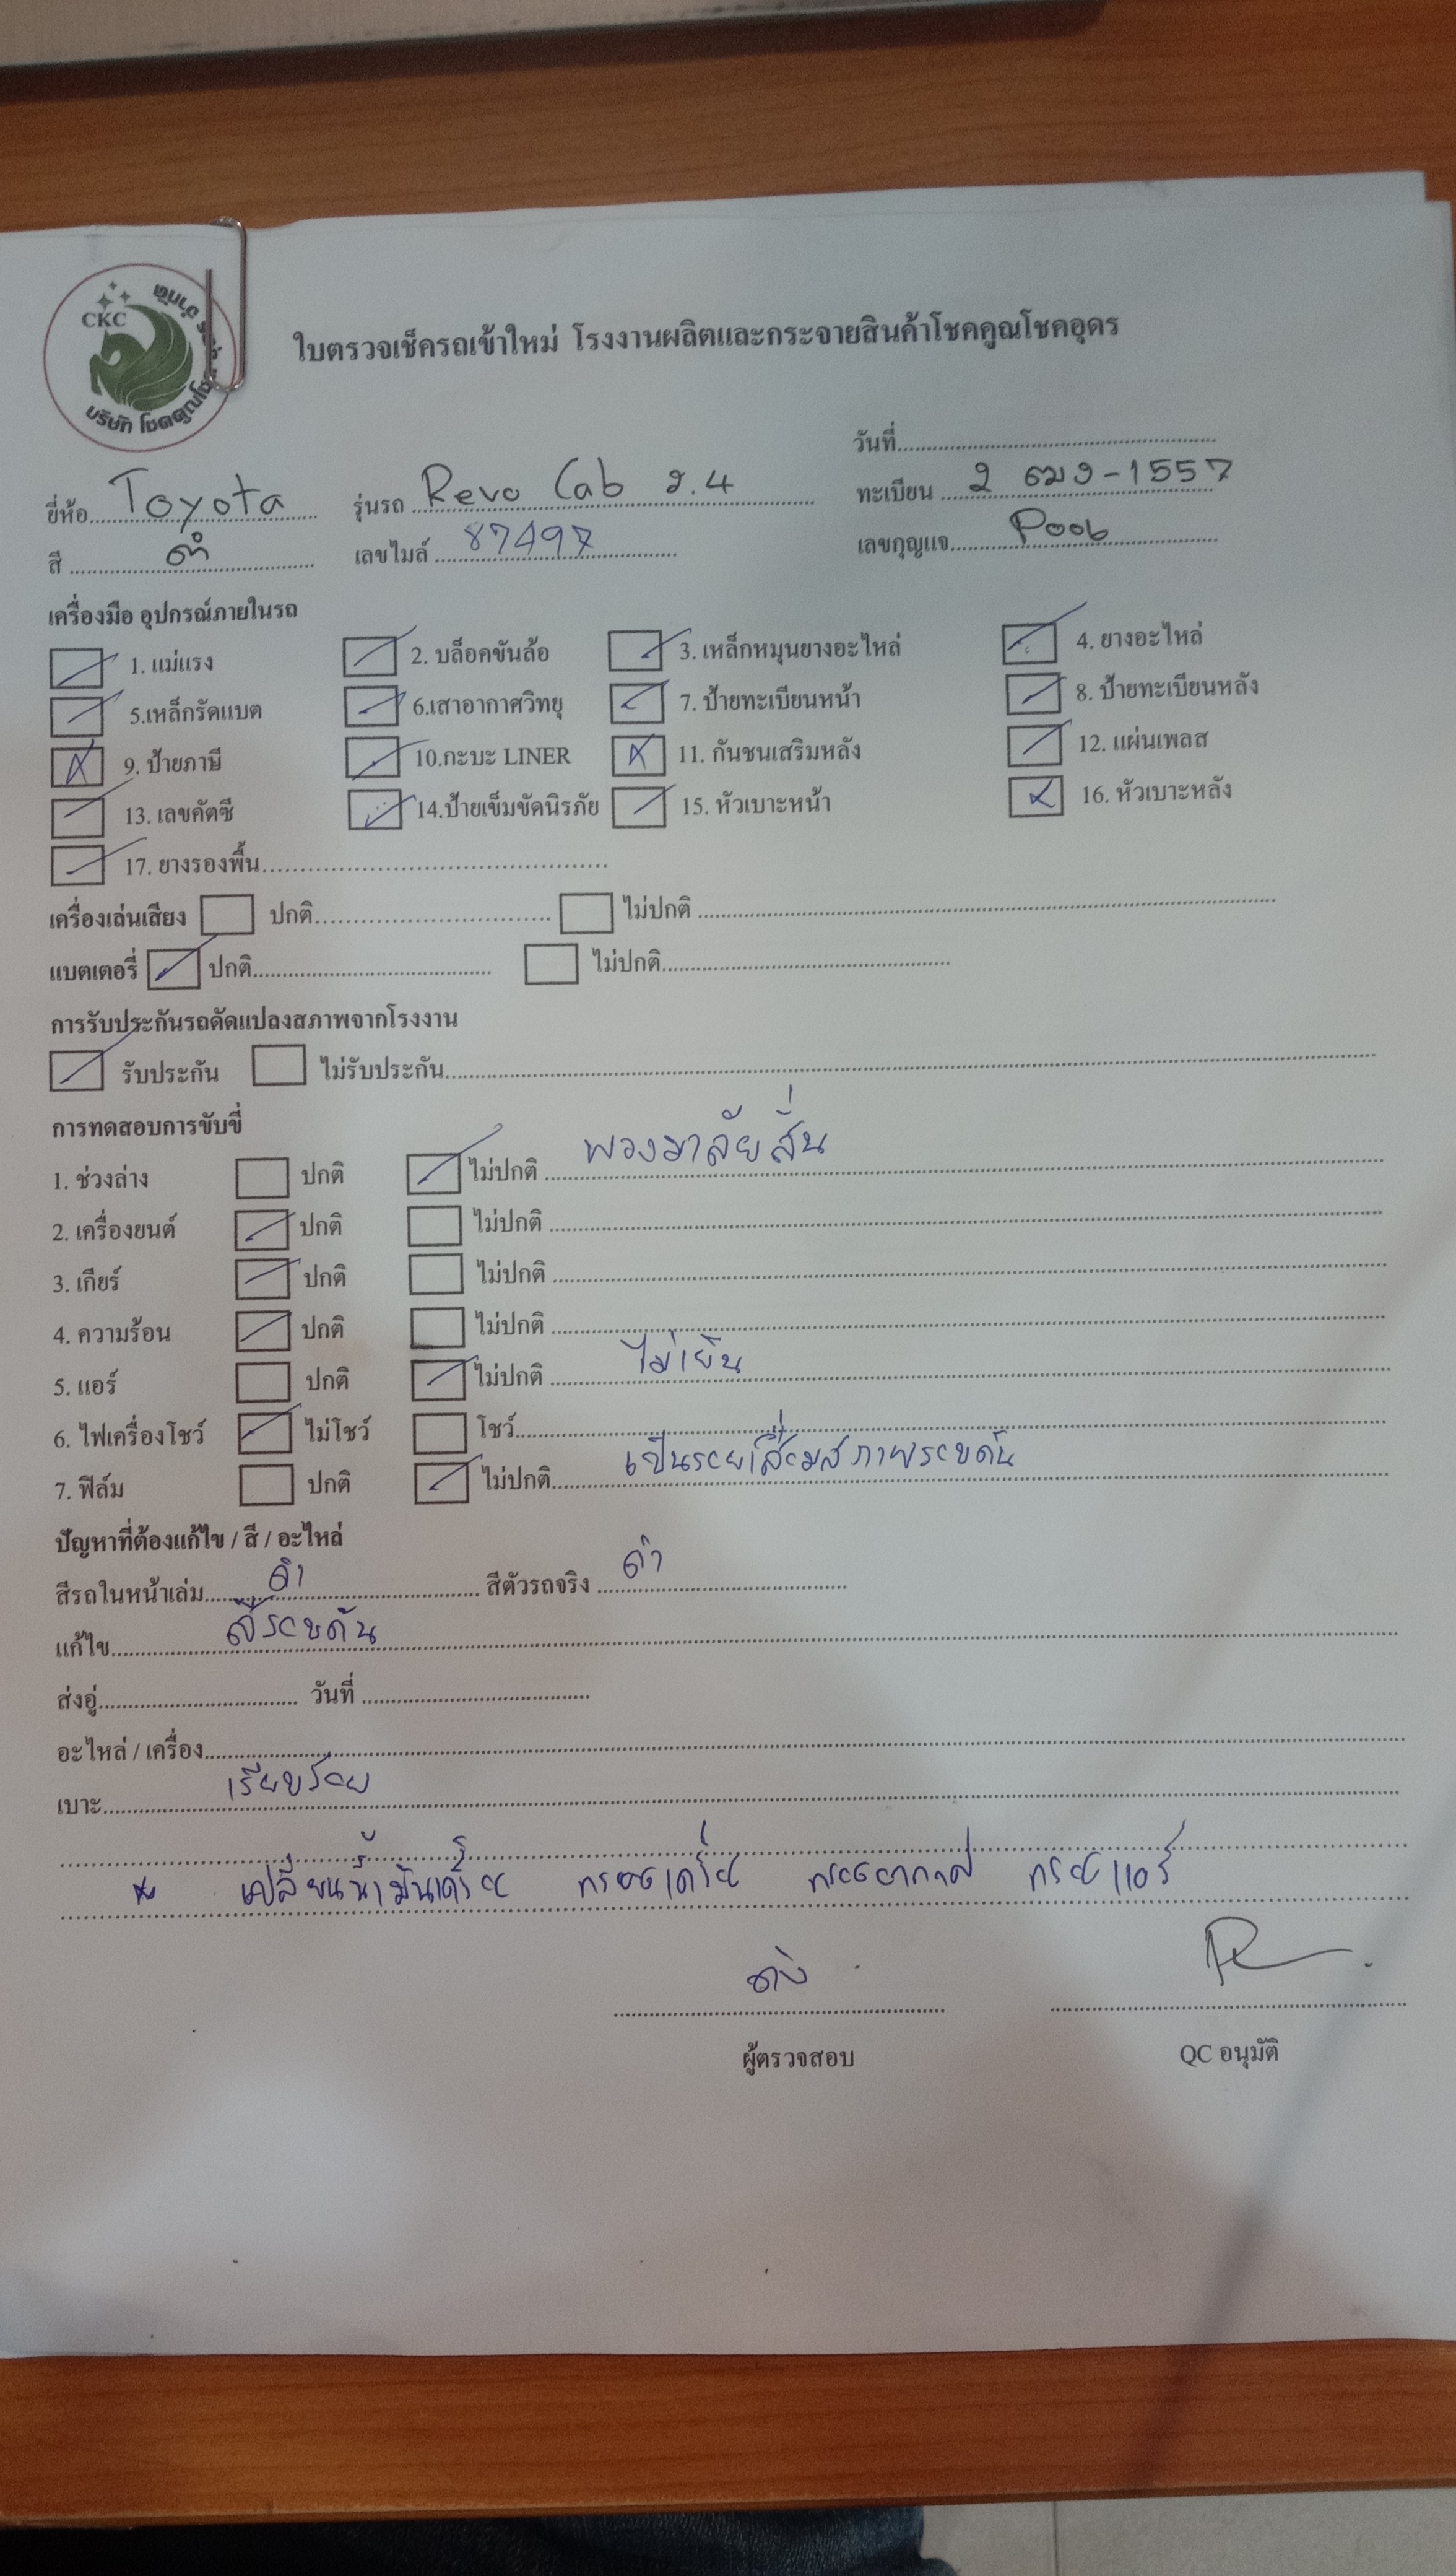 CKC
บริษัท โชคคูณโชค
จำกัด
ใบตรวจเช็ครถเข้าใหม่ โรงงานผลิตและกระจายสินค้าโชคคูณโชคอุดร
วันที่
ยี่ห้อ Toyota รุ่นรถ Revo Cab 2.4 ทะเบียน 2 ฒง-1557
สี ดำ เลขไมล์ 87497 เลขกุญแจ P006
เครื่องมือ อุปกรณ์ภายในรถ
1. แม่แรง 2. บล็อคขันล้อ 3. เหล็กหมุนยางอะไหล่ 4. ยางอะไหล่
5.เหล็กรัดแบต 6.เสาอากาศวิทยุ 7. ป้ายทะเบียนหน้า 8. ป้ายทะเบียนหลัง
9. ป้ายภาษี 10.กะบะ LINER 11. กันชนเสริมหลัง 12. แผ่นเพลส
13. เลขคัตซี 14.ป้ายเข็มขัดนิรภัย 15. หัวเบาะหน้า 16. หัวเบาะหลัง
17. ยางรองพื้น
เครื่องเล่นเสียง ปกติ ไม่ปกติ
แบตเตอรี่ ปกติ ไม่ปกติ
การรับประกันรถดัดแปลงสภาพจากโรงงาน
รับประกัน ไม่รับประกัน
การทดสอบการขับขี่
1. ช่วงล่าง ปกติ ไม่ปกติ พวงมาลัยสั่น
2. เครื่องยนต์ ปกติ ไม่ปกติ
3. เกียร์ ปกติ ไม่ปกติ
4. ความร้อน ปกติ ไม่ปกติ
5. แอร์ ปกติ ไม่ปกติ ไม่เย็น
6. ไฟเครื่องโชว์ ไม่โชว์ โชว์
7. ฟิล์ม ปกติ ไม่ปกติ เป็นรอยเสื่อมสภาพรอบคัน
ปัญหาที่ต้องแก้ไข / สี / อะไหล่
สีรถในหน้าเล่ม ดำ สีตัวรถจริง ดำ
แก้ไข สีรอบคัน
ส่งอู่ วันที่
อะไหล่ / เครื่อง
เบาะ เรียบร้อย
* เปลี่ยนน้ำมันเครื่อง กรองเครื่อง กรองอากาศ กรองแอร์
ผู้ตรวจสอบ QC อนุมัติ